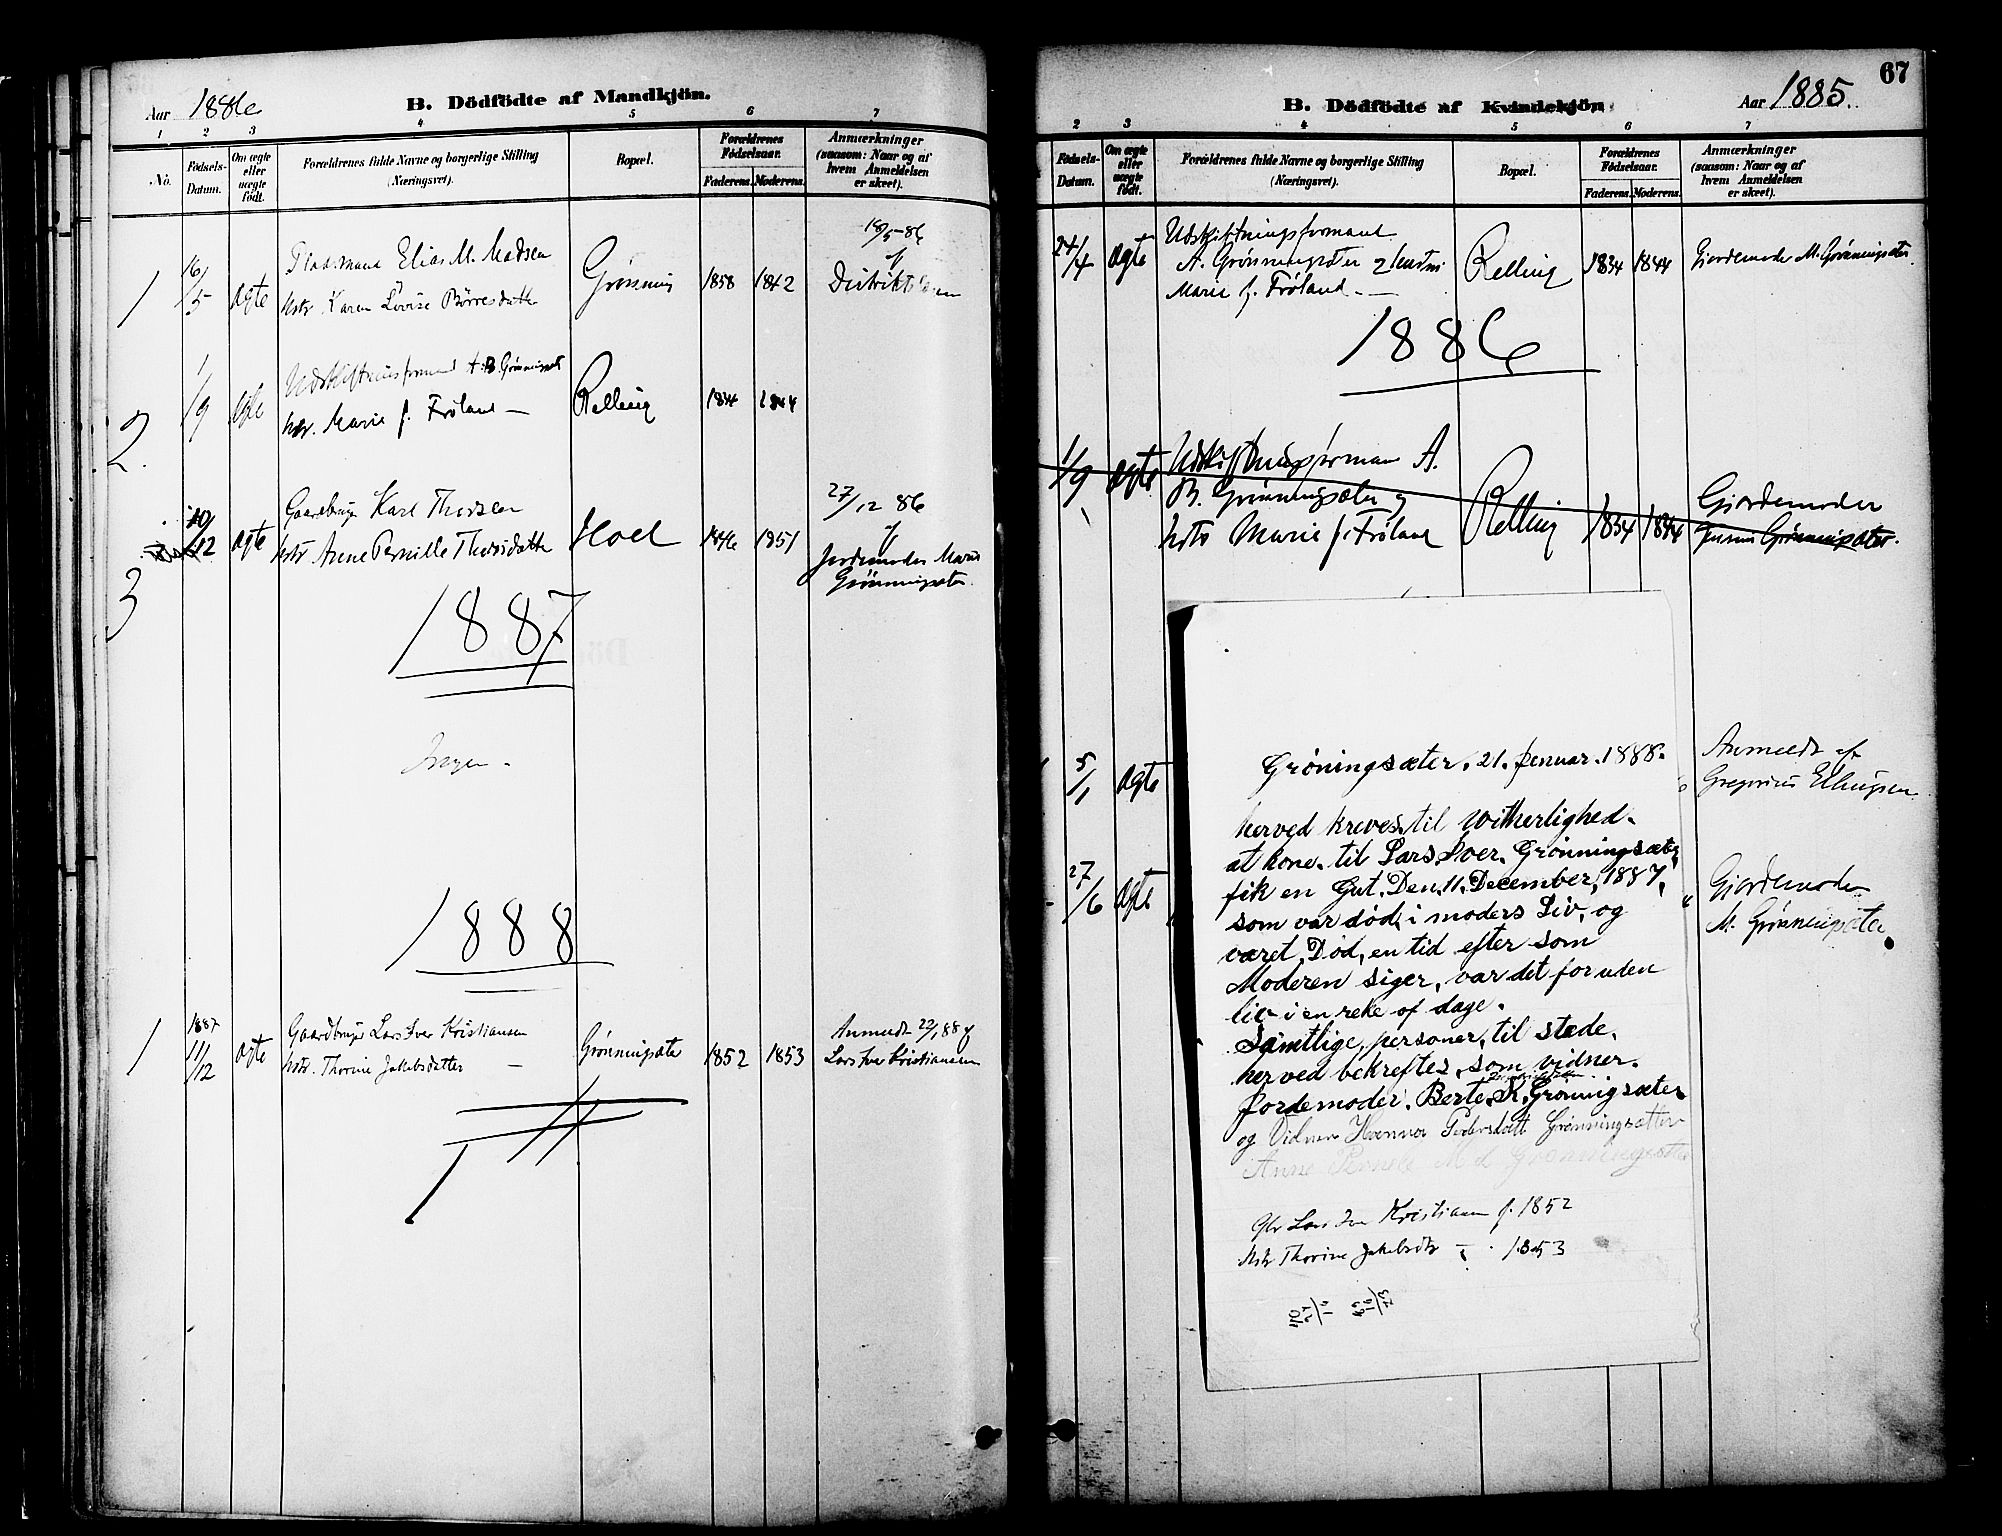 Aar 1886
B. Dödfödte af Mandkjön.
1 2 3 4 5 6 7
No.
Födsels-
Datum.
Om ægte
eller
uægte
födt.
Forældrenes fulde Navne og borgerlige Stilling
(Næringsvei).
Bopæl.
Forældrenes
Födselsaar.
Faderens. Moderens.
Anmærkninger
(saasom: Naar og af
hvem Anmeldelsen
er skeet).
1 16/5 ægte
Pladsmand Elias M. Madsen
hstr Karen Lovise Børresdatter
Grønning 1858 1842
18/5-86
af
Distriktslægen
2. 1/9 ægte
Udskiftningsformand A. B. Grønningsæt
hstr. Marie f. Frøland —
Relling 1834 1844
3 10/12 ægte
Gaardbruger Karl Thorsen
hstr Anne Pernille Thorsdatter
Hoel 1846 1851
27/12 86
af
Jordemoder Maren
Grönningsæter
1887
Ingen.
1888
1 1887 11/12 ægte
Gaardbruger Lars Iver Kristiansen
hstr. Thorine Jakobsdatter —
Grönningsæter 1852 1853
Anmeldt 22/1 88 af
Lars Iver Kristiansen
67
B. Dödfödte af Kvindekjön
Aar 1885.
2 3 4 5 6 7
Födsels-
Datum.
Om ægte
eller
uægte
födt.
Forældrenes fulde Navne og borgerlige Stilling
(Næringsvei).
Bopæl.
Forældrenes
Födselsaar.
Faderens. Moderens.
Anmærkninger
(saasom: Naar og af
hvem Anmeldelsen
er skeet).
24/4 ægte
Udskiftningsformand
A. Grønningsæter & hustru
Marie f. Frøland —
Relling 1834 1844
Gjordemoder M. Grönningsæter
1886
1/9 ægte
Udskiftningsformand A.
B. Grønningsæter og
hstr Marie f. Frøland
Relling 1834 1844
Gjordemoder
Grönningsæter.
5/1 ægte
Anmeldt af
Gregorius Ellingsen
27/6 ægte
Gjordemoder
M. Grönningsæter
Grøningsæter. 21. Januar. 1888.
herved kreves til witherlighed.
at kone. til Lars Iver. Grønningsæter
fik en Gut. Den. 11. December, 1887,
som var død, i moders Liv, og
været, Død, en tid efter som
Moderen siger, var det foruden
liv i en reke af dage.
Samtlige, personer, til stæde,
herved bekreftes, som vidner.
Jordemoder. Berte. K. Grøningsæter
og Vidner Hanna Pedersdatt Grønningsætter
Anne M d Grønningsæter
Gbr Lars Iver Kristiansen f. 1852
Hstr Thorine Jakobsdtr — " — 1853